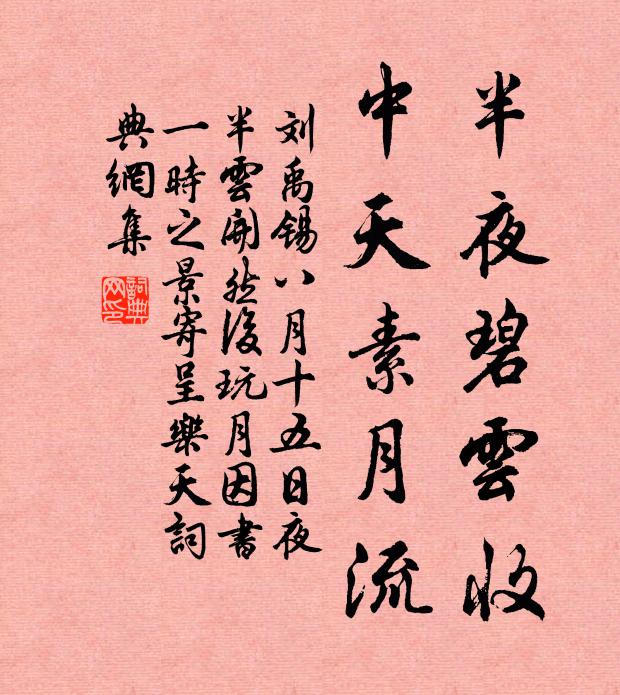 半夜碧雲收
中天素月流
刘禹錫八月十五日夜
半雲開然後玩月因書
一時之景寄呈樂天詞
典網集
詞典
网印